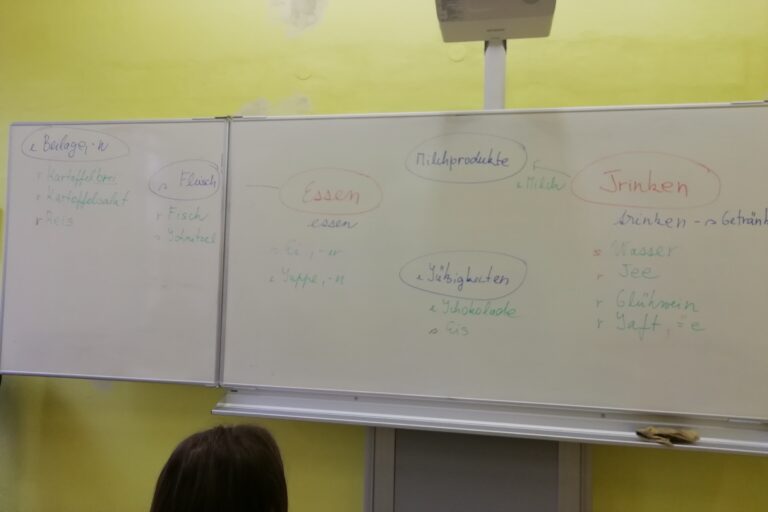 e Beilage, -n
r Kartoffelbrei
r Kartoffelsalat
r Reis
s Fleisch
r Fisch
s Schnitzel
Essen
essen
s Ei, -er
e Suppe, -n
Milchprodukte
e Milch
e Süßigkeiten
e Schokolade
s Eis
Trinken
trinken - s Getränk
s Wasser
r Tee
r Glühwein
r Saft, ⸚e